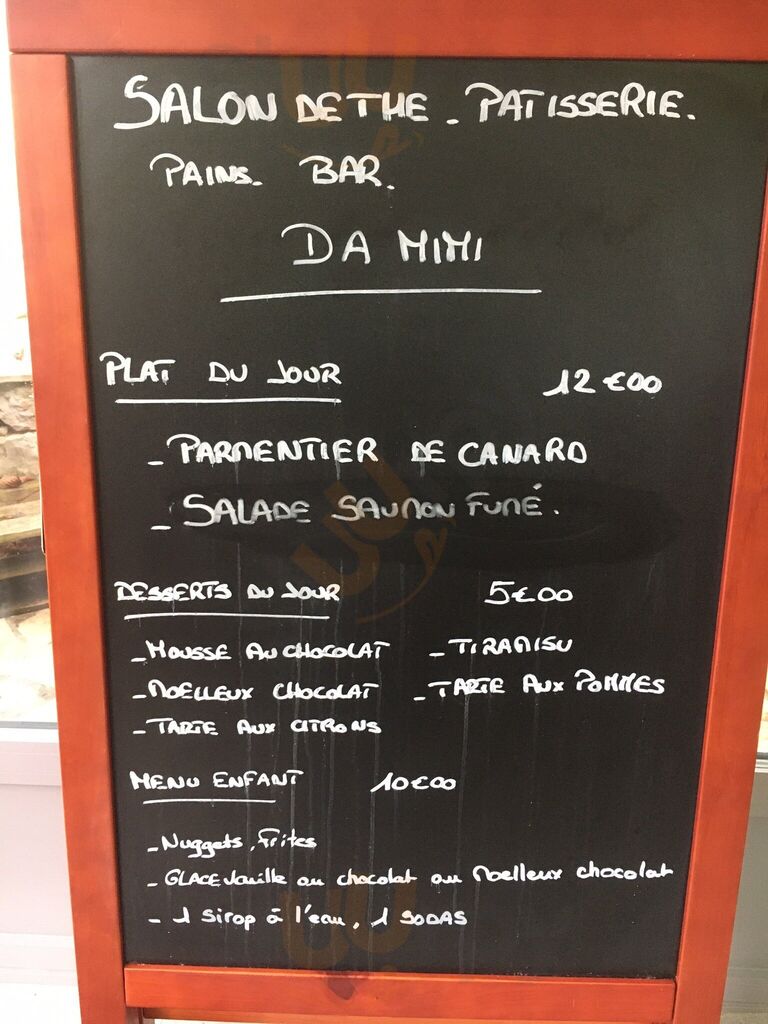 SALON DE THE - PATISSERIE.
PAINS. BAR.
DA MIMI
PLAT DU JOUR 12€00
- PARMENTIER DE CANARD
- SALADE SAUMON FUMÉ.
DESSERTS DU JOUR 5€00
- MOUSSE AU CHOCOLAT - TIRAMISU
- MOELLEUX CHOCOLAT - TARTE AUX POMMES
- TARTE AUX CITRONS
MENU ENFANT 10€00
- Nuggets, Frites
- GLACE Vanille ou chocolat ou Moelleux chocolat
- 1 Sirop à l'eau, 1 SODAS